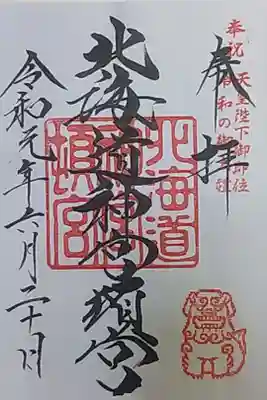 奉祝
天皇陛下御即位
令和の
奉拝
北海道神宮頓宮
北海道
神宮
頓宮
令和元年六月二十日